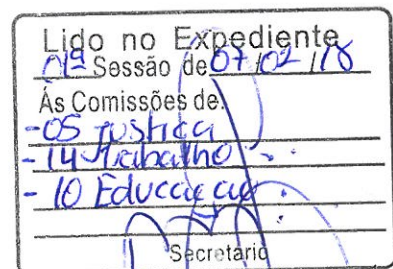 Lido no Expediente
01ª Sessão de 07/02/18
Ás Comissões de:
-05 Justiça
-14 Trabalho
- 10 Educação
Secretário